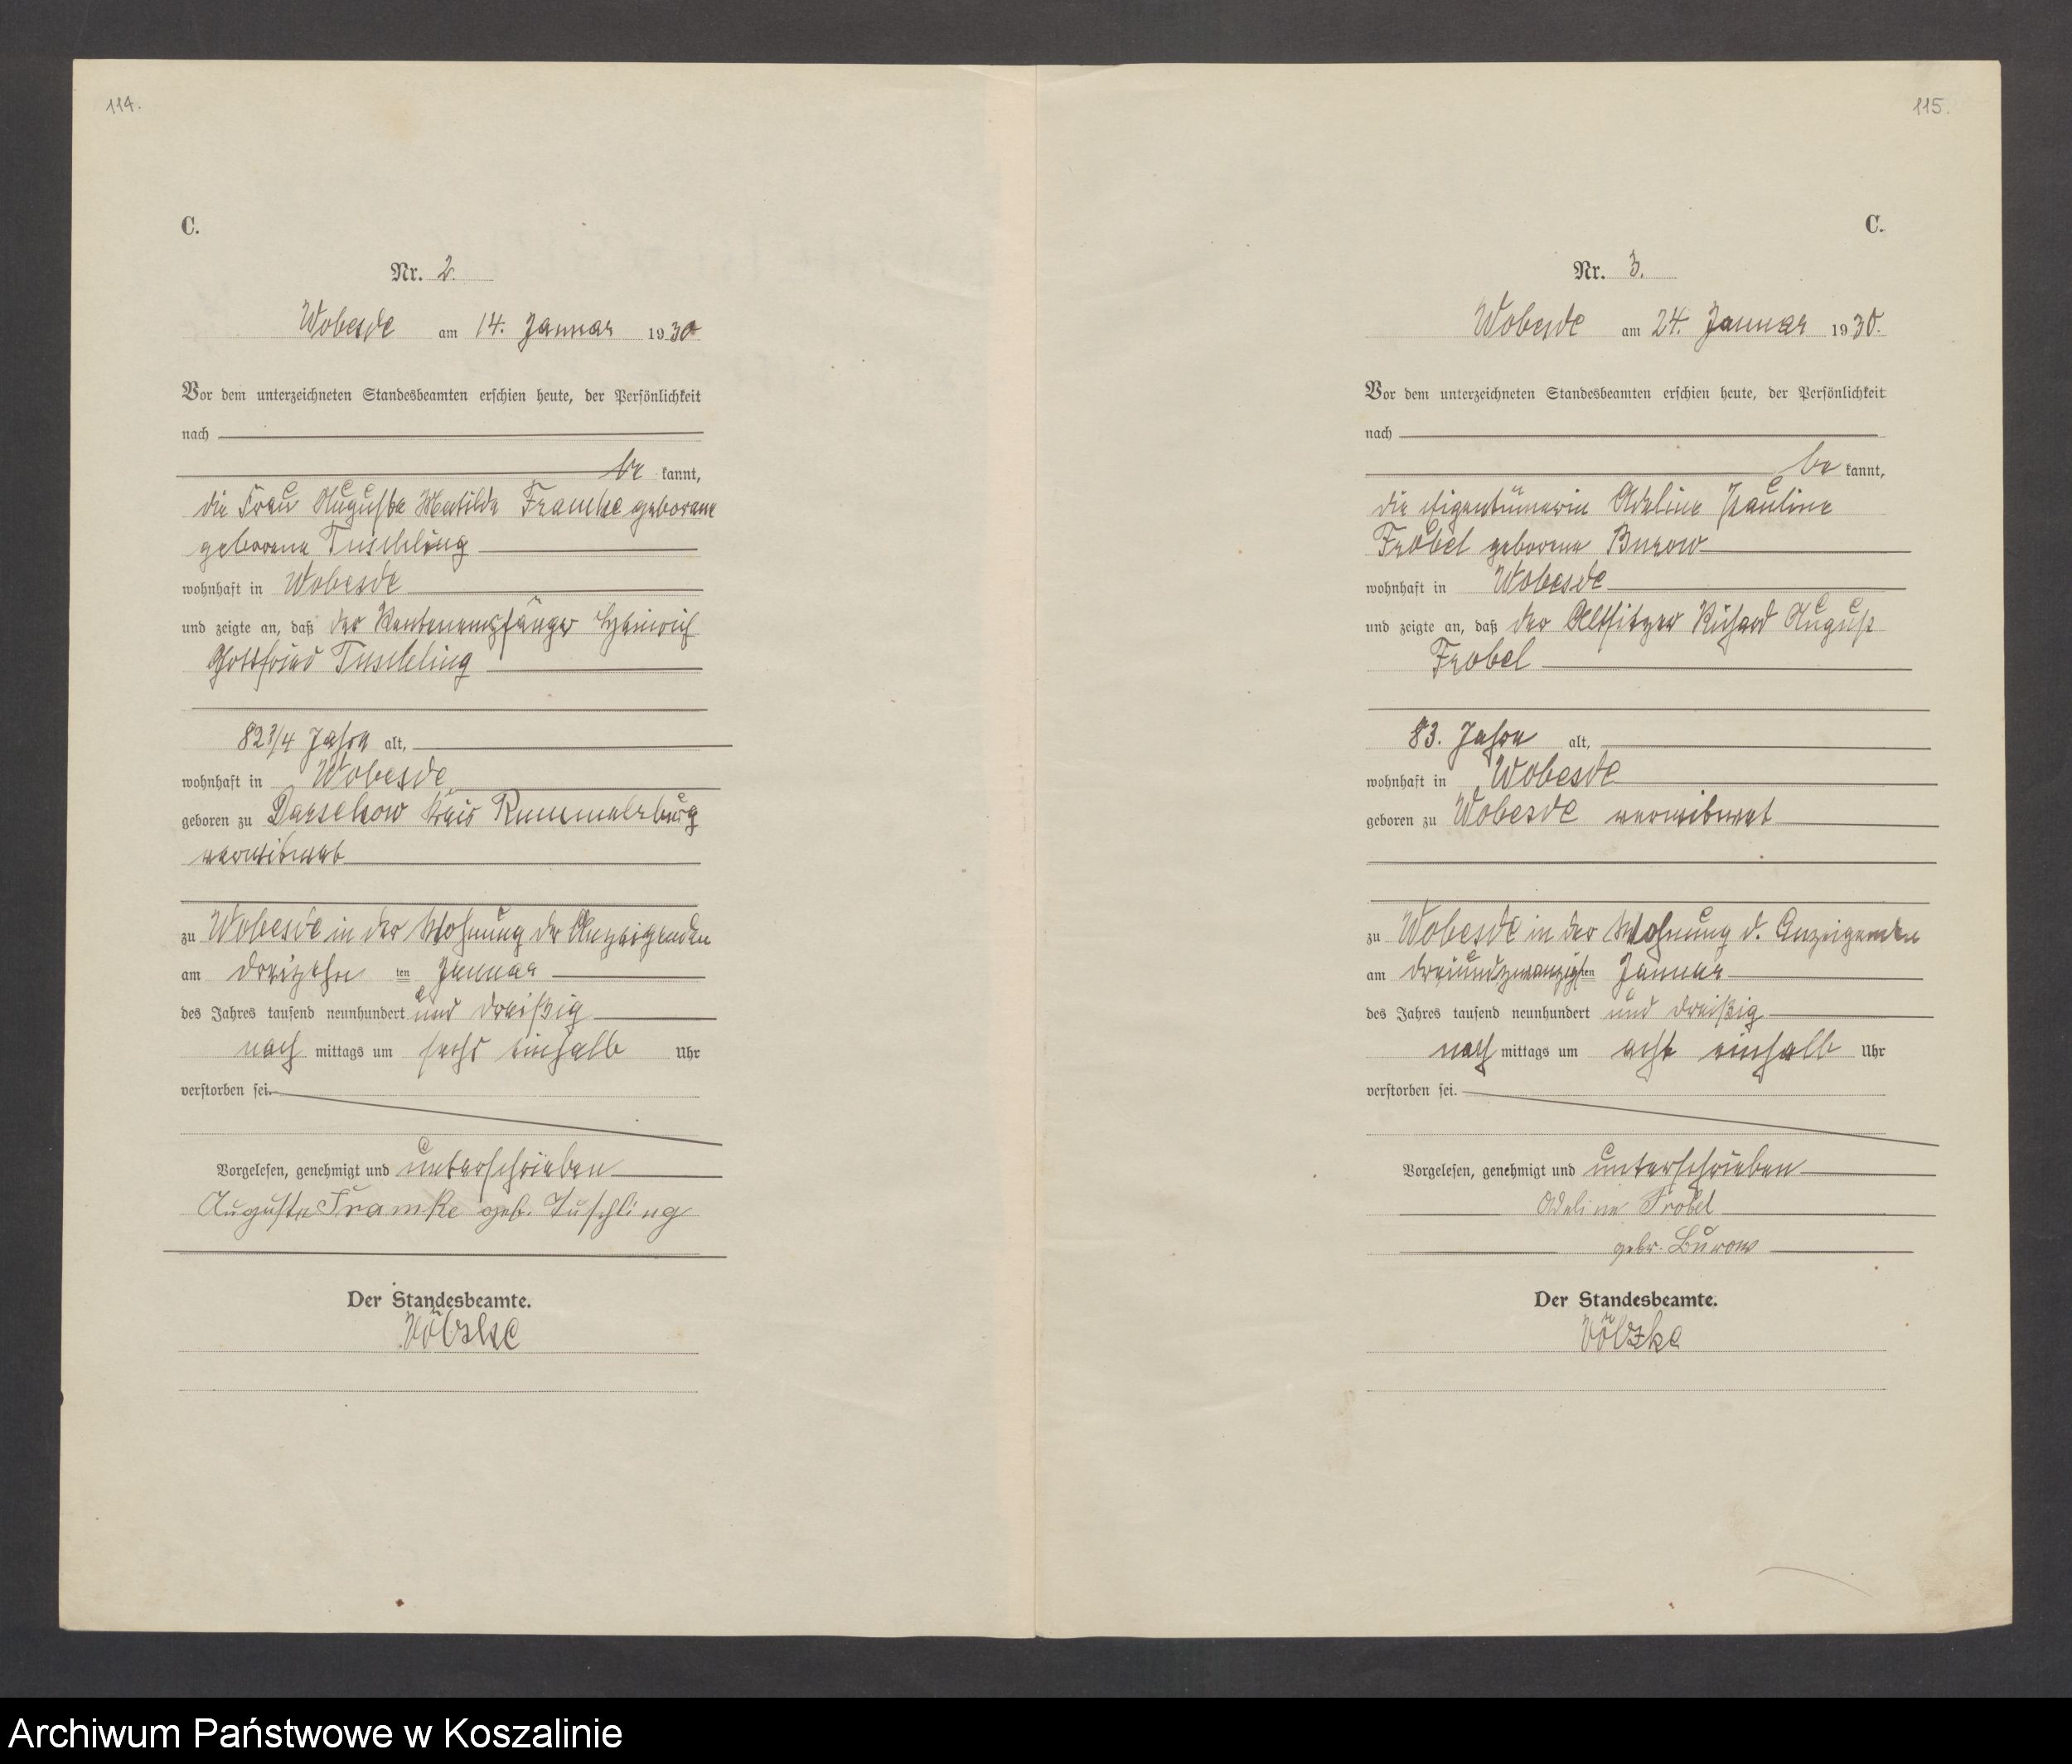 114.
C.
Nr. 2.
Wobesde am 14. Januar 1930
Vor dem unterzeichneten Standesbeamten erschien heute, der Persönlichkeit
nach
be kannt,
die Frau Auguste Matilde Framke geborene
geborene Tuschling
wohnhaft in Wobesde
und zeigte an, daß der Rentenempfänger Heinrich
Gottfried Tuschling
82 3/4 Jahre alt,
wohnhaft in Wobesde
geboren zu Darsekow Kreis Rummelsburg
verwitwet
zu Wobesde in der Wohnung der Anzeigenden
am dreizehn ten Januar
des Jahres tausend neunhundert und dreißig
nach mittags um sechs einhalb Uhr
verstorben sei.
Vorgelesen, genehmigt und unterschrieben
Auguste Framke geb. Tuschling
Der Standesbeamte.
Völzke
115.
C.
Nr. 3.
Wobesde am 24. Januar 1930.
Vor dem unterzeichneten Standesbeamten erschien heute, der Persönlichkeit
nach
be kannt,
die Eigentümerin Adeline Pauline
Fröbel geborene Burow
wohnhaft in Wobesde
und zeigte an, daß der Altsitzer Richard August
Frobel
83. Jahre alt,
wohnhaft in Wobesde
geboren zu Wobesde verwitwet
zu Wobesde in der Wohnung d. Anzeigenden
am dreiundzwanzigsten Januar
des Jahres tausend neunhundert und dreißig
nach mittags um acht einhalb Uhr
verstorben sei.
Vorgelesen, genehmigt und unterschrieben
Adeline Fröbel
gebr. Burow
Der Standesbeamte.
Völzke
Archiwum Państwowe w Koszalinie